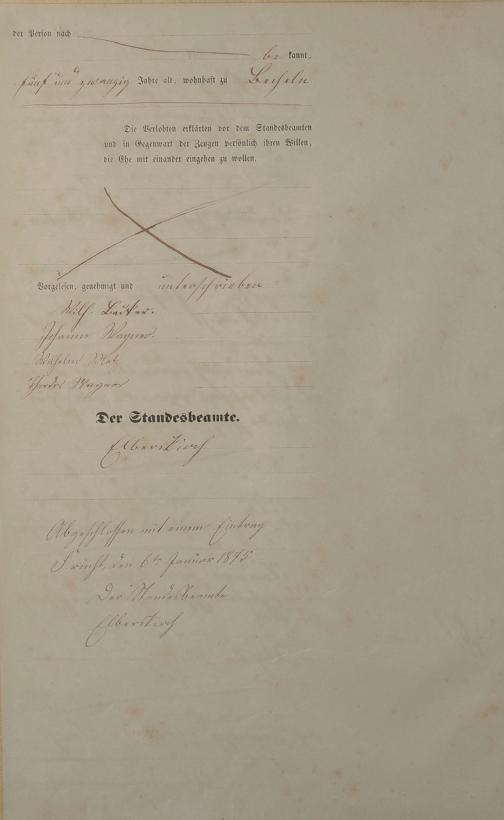 der Person nach
be kannt,
fünf und zwanzig Jahre alt, wohnhaft zu Becheln
Die Verlobten erklärten vor dem Standesbeamten
und in Gegenwart der Zeugen persönlich ihren Willen,
die Ehe mit einander eingehen zu wollen.
Vorgelesen, genehmigt und unterschrieben
Wilh. Becker.
Johann Wagner.
Wilhelm
Theodor Wagner
Der Standesbeamte.
Elberskirch
Abgeschlossen mit einem Eintrag
Frücht, den 6ten Januar 1875
Der Standesbeamte
Elberskirch